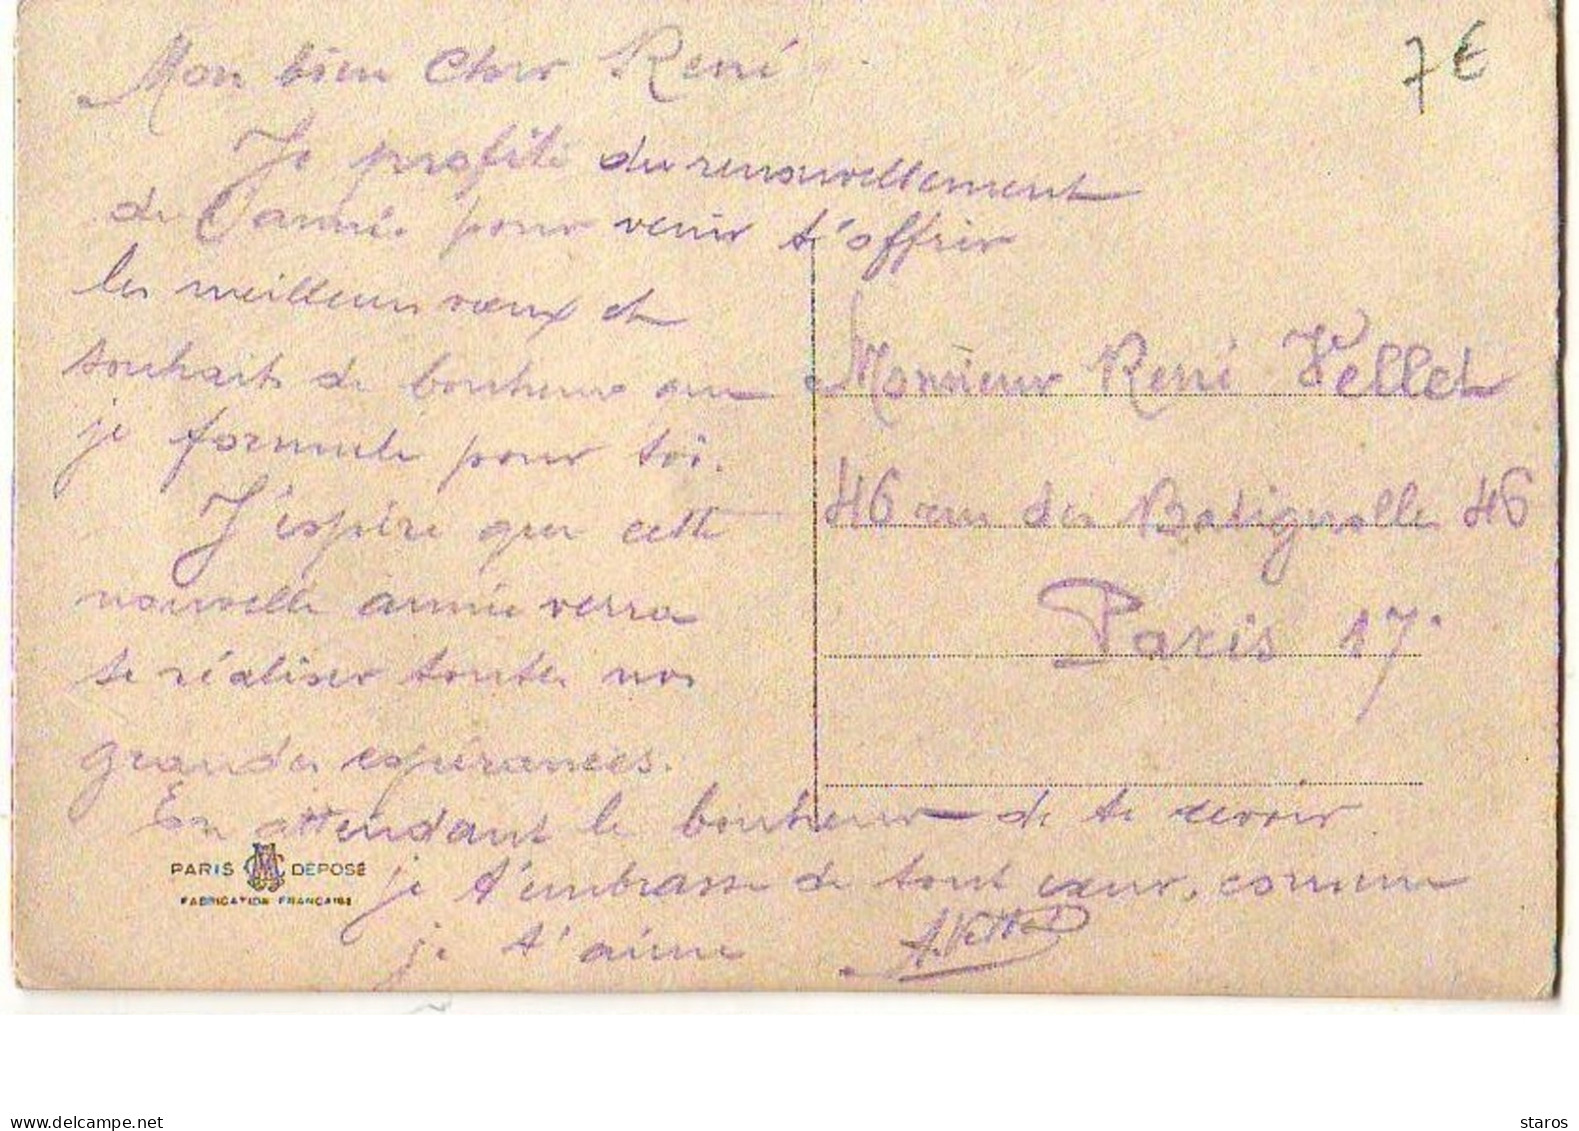 7€
Mon bien cher René
Je profite du renouvellement
de l'année pour venir t'offrir
les meilleurs vœux et
souhaits de bonheur que
je formule pour toi.
J'espère que cette
nouvelle année verra
se réaliser toutes nos
grandes espérances.
En attendant le bonheur de te revoir
je t'embrasse de tout cœur, comme
je t'aime
Monsieur René Vellet
46 rue des Batignolles 46
Paris 17e
PARIS DÉPOSÉ
FABRICATION FRANÇAISE
delcampe.net
staros